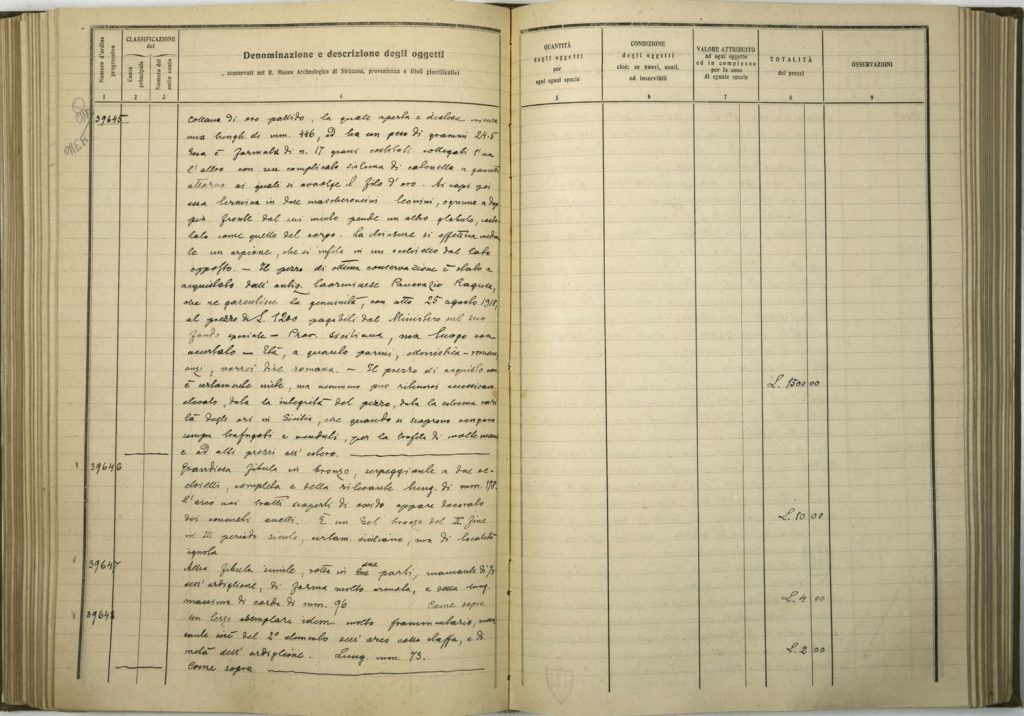 Numero d'ordine progressivo
CLASSIFICAZIONE
del
Conto principale
Numero del sotto conto
Denominazione e descrizione degli oggetti
conservati nel R. Museo Archeologico di Siracusa, provenienza e titoli giustificativi
1 2 3 4
QUANTITÀ
degli oggetti
per
ogni egual specie
CONDIZIONE
degli oggetti
cioè: se nuovi, usati,
od inservibili
VALORE ATTRIBUITO
ad ogni oggetto
ed in complesso
per le cose
di eguale specie
TOTALITÀ
dei prezzi
OSSERVAZIONI
5 6 7 8 9
39645 Collana di oro pallido, la quale aperta e distesa misura
una lungh. di mm. 446, ed ha un peso di grammi 24.5
Essa è formata di n. 17 grani costolati collegati l'un
l'altro con un complicato sistema di catenella a
attorno ai quali si avvolge il filo d'oro. Ai capi poi
essa termina in due mascheroncini leonini, ognuno a
pia fronte dal cui pende un altro globulo,
lato come quello del corpo. La chiusura si effettua
te un arpione, che si infila in un occhiello dal lato
opposto. — Il pezzo di ottima conservazione è stato
acquistato dall' antiq. taorminese Pancrazio Ragusa,
che ne garentisce la genuinità, con atto 25 agosto 1918,
al prezzo di L. 1200 pagabili dal Ministero sul suo
fondo speciale — Prov. siciliana, ma luogo non
accertato — Età, a quanto parmi, ellenistica-romana
anzi, vorrei dire romana. — Il prezzo di acquisto non
è certamente mite, ma nemmeno può ritenersi
elevato, data la integrità del pezzo, data la estrema rari
tà degli ori in Sicilia, che quando si scoprono vengono
sempre trafugati e venduti, per la trafila di molte mani
e ad alti prezzi all' estero.
L. 1500 00
39646 Grandiosa fibula in bronzo, serpeggiante a due oc-
chielli, completa e della rilevante lung. di mm. 178.
L'arco nei tratti scoperti di ossido appare decorato
dei consueti anelli. È un bel bronzo del II fine
in III periodo siculo, certam. siciliano, ma di località
ignota
L. 10 00
39647 Altra fibula simile, rotta in due parti, mancante di
dell' ardiglione, di forma molto arcuata, e della lung.
massima di corda di mm. 96 Come sopra
L. 4 00
39648 Un terzo esemplare idem molto frammentario, man
cante cioè del 2° elemento dell' arco colla staffa, e di
metà dell' ardiglione. Lung. mm. 73.
Come sopra
L. 2 00